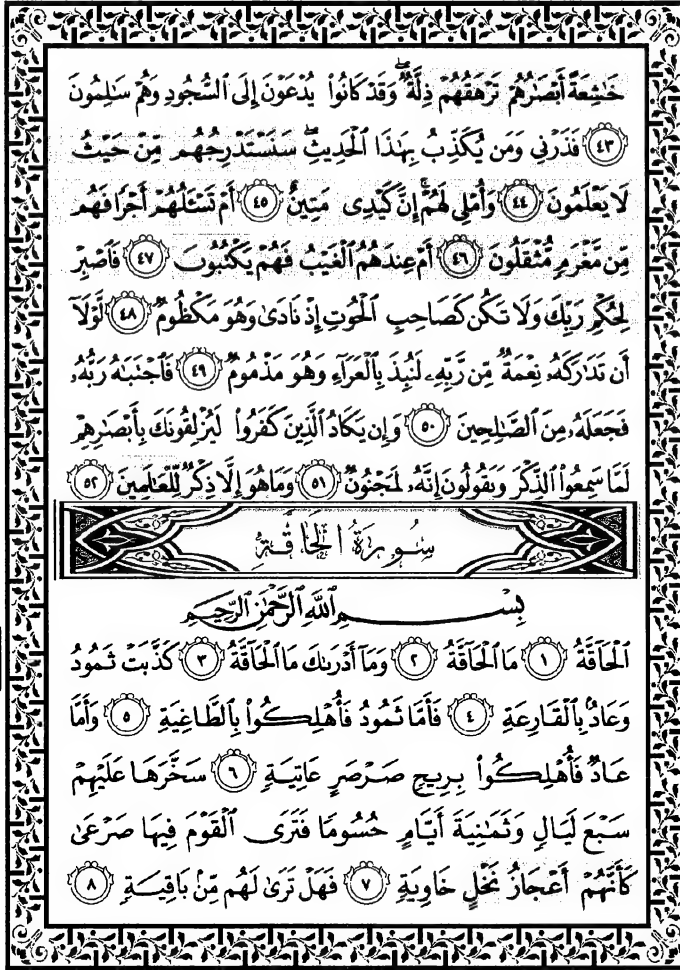 خَٰشِعَةً أَبْصَٰرُهُمْ تَرْهَقُهُمْ ذِلَّةٌ ۖ وَقَدْ كَانُوا۟ يُدْعَوْنَ إِلَى ٱلسُّجُودِ وَهُمْ سَٰلِمُونَ
﴿٤٣﴾ فَذَرْنِى وَمَن يُكَذِّبُ بِهَٰذَا ٱلْحَدِيثِ ۖ سَنَسْتَدْرِجُهُم مِّنْ حَيْثُ
لَا يَعْلَمُونَ ﴿٤٤﴾ وَأُمْلِى لَهُمْ ۚ إِنَّ كَيْدِى مَتِينٌ ﴿٤٥﴾ أَمْ تَسْـَٔلُهُمْ أَجْرًا فَهُم
مِّن مَّغْرَمٍ مُّثْقَلُونَ ﴿٤٦﴾ أَمْ عِندَهُمُ ٱلْغَيْبُ فَهُمْ يَكْتُبُونَ ﴿٤٧﴾ فَٱصْبِرْ
لِحُكْمِ رَبِّكَ وَلَا تَكُن كَصَاحِبِ ٱلْحُوتِ إِذْ نَادَىٰ وَهُوَ مَكْظُومٌ ﴿٤٨﴾ لَّوْلَآ
أَن تَدَٰرَكَهُۥ نِعْمَةٌ مِّن رَّبِّهِۦ لَنُبِذَ بِٱلْعَرَآءِ وَهُوَ مَذْمُومٌ ﴿٤٩﴾ فَٱجْتَبَٰهُ رَبُّهُۥ
فَجَعَلَهُۥ مِنَ ٱلصَّٰلِحِينَ ﴿٥٠﴾ وَإِن يَكَادُ ٱلَّذِينَ كَفَرُوا۟ لَيُزْلِقُونَكَ بِأَبْصَٰرِهِمْ
لَمَّا سَمِعُوا۟ ٱلذِّكْرَ وَيَقُولُونَ إِنَّهُۥ لَمَجْنُونٌ ﴿٥١﴾ وَمَا هُوَ إِلَّا ذِكْرٌ لِّلْعَٰلَمِينَ ﴿٥٢﴾
سُورَةُ الْحَاقَّةِ
بِسْمِ ٱللَّهِ ٱلرَّحْمَٰنِ ٱلرَّحِيمِ
ٱلْحَآقَّةُ ﴿١﴾ مَا ٱلْحَآقَّةُ ﴿٢﴾ وَمَآ أَدْرَىٰكَ مَا ٱلْحَآقَّةُ ﴿٣﴾ كَذَّبَتْ ثَمُودُ
وَعَادٌۢ بِٱلْقَارِعَةِ ﴿٤﴾ فَأَمَّا ثَمُودُ فَأُهْلِكُوا۟ بِٱلطَّاغِيَةِ ﴿٥﴾ وَأَمَّا
عَادٌ فَأُهْلِكُوا۟ بِرِيحٍ صَرْصَرٍ عَاتِيَةٍ ﴿٦﴾ سَخَّرَهَا عَلَيْهِمْ
سَبْعَ لَيَالٍ وَثَمَٰنِيَةَ أَيَّامٍ حُسُومًا فَتَرَى ٱلْقَوْمَ فِيهَا صَرْعَىٰ
كَأَنَّهُمْ أَعْجَازُ نَخْلٍ خَاوِيَةٍ ﴿٧﴾ فَهَلْ تَرَىٰ لَهُم مِّنۢ بَاقِيَةٍ ﴿٨﴾